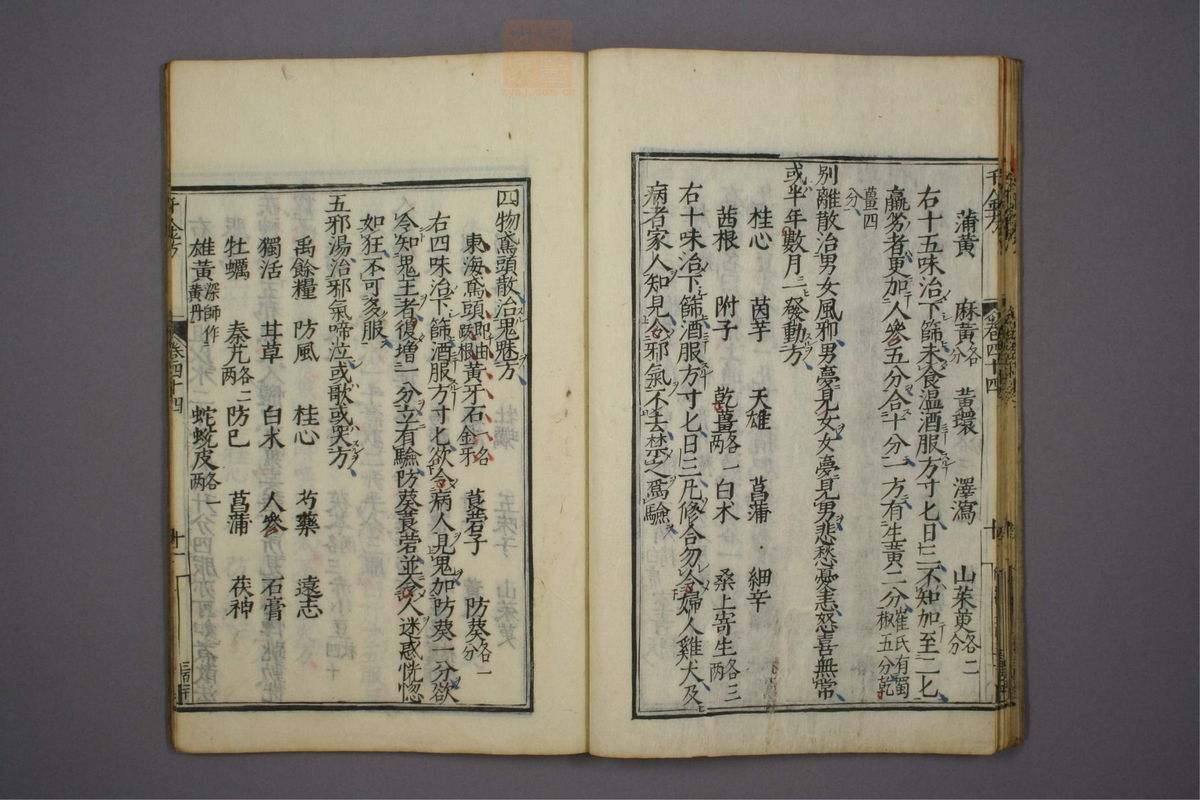 千金方 卷四十四 十
蒲黃 麻黃各一分 黃環 澤瀉 山茱萸各二分
右十五味治下篩未食溫酒服方寸匕日三不知加至二匕
羸劣者更加人參五分合十分一方有生黃二分崔氏有蜀椒五分乾
薑四分
別離散治男女風邪男夢見女女夢見男悲愁憂恚怒喜無常
或半年數月一發動方
桂心 茵芋 天雄 菖蒲 細辛
茜根 附子 乾薑各一兩 白朮 桑上寄生各三兩
右十味治下篩酒服方寸匕日三凡修合勿令婦人雞犬及
病者家人知見令邪氣不去禁之為驗
四物鳶頭散治鬼魅方
東海鳶頭即由跋根 黃牙石一名金牙 莨菪子 防葵各一分
右四味治下篩酒服方寸匕欲令病人見鬼加防葵一分欲
令知鬼主者復增一分立有驗防葵莨菪並令人迷惑恍惚
如狂不可多服
五邪湯治邪氣啼泣或歌或哭方
禹餘糧 防風 桂心 芍藥 遠志
獨活 甘草 白朮 人參 石膏
牡蠣 秦艽各二兩 防已 菖蒲 茯神
雄黃深師作黃丹 蛇蛻皮各一兩
千金方 卷四十四 十一